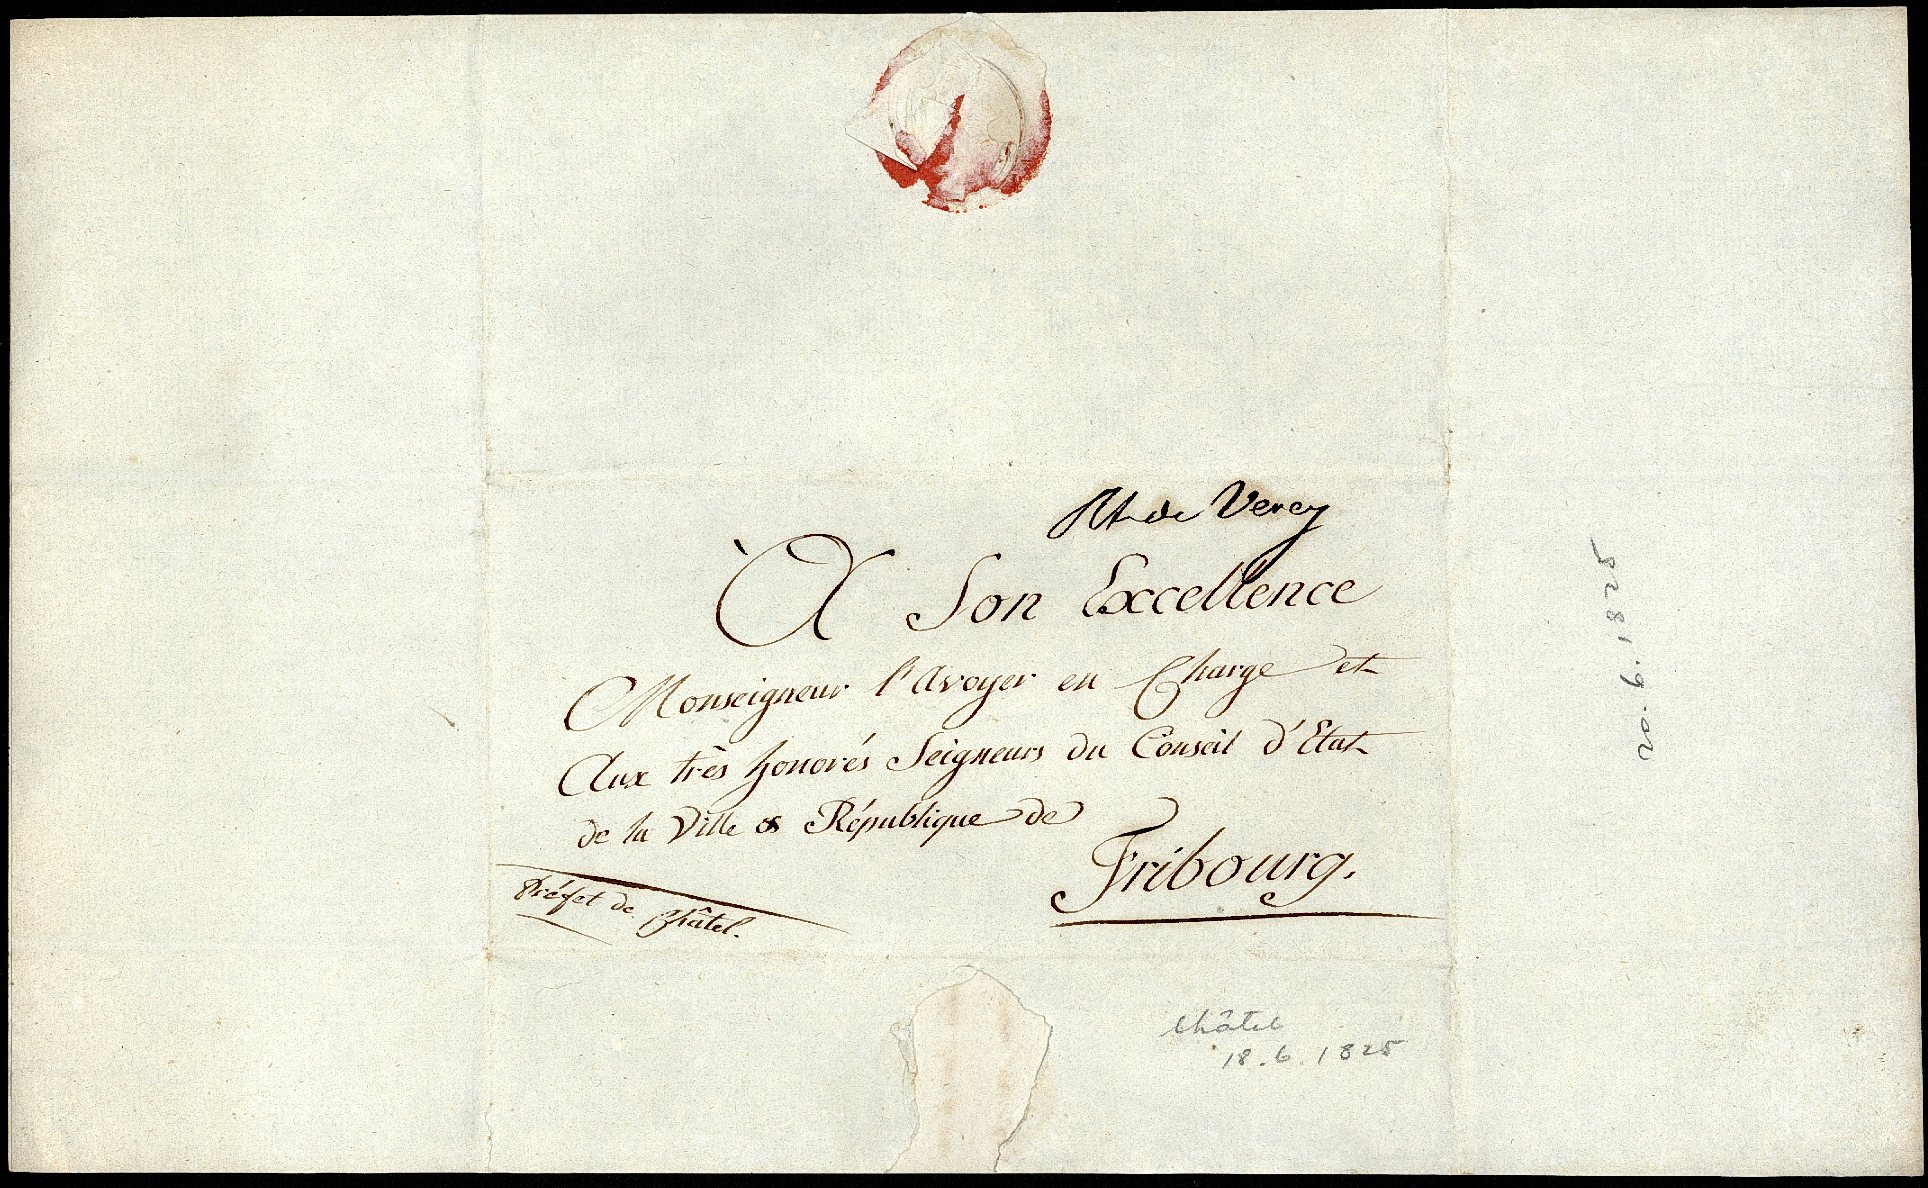 Rt de Vevey
À Son Excellence
Monseigneur l'Avoyer en Charge et
Aux très honorés Seigneurs du Conseil d'Etat
de la Ville & République de
Fribourg.
Préfet de Châtel.
Châtel
18.6.1825
20.6.1825